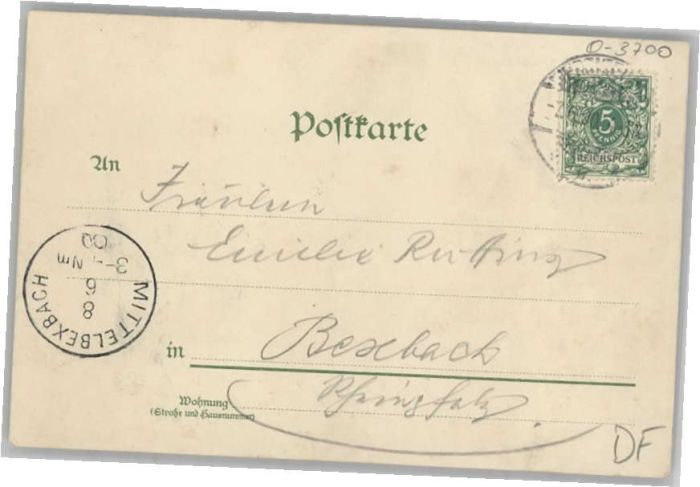 O-3700
5
REICHSPOST
Postkarte
An
Fräulein
Emilie
MITTELBEXBACH
8
6
3-4 Nm
00
in
Bexbach
Rheinpfalz
Wohnung
(Straße und Hausnummer)
DF